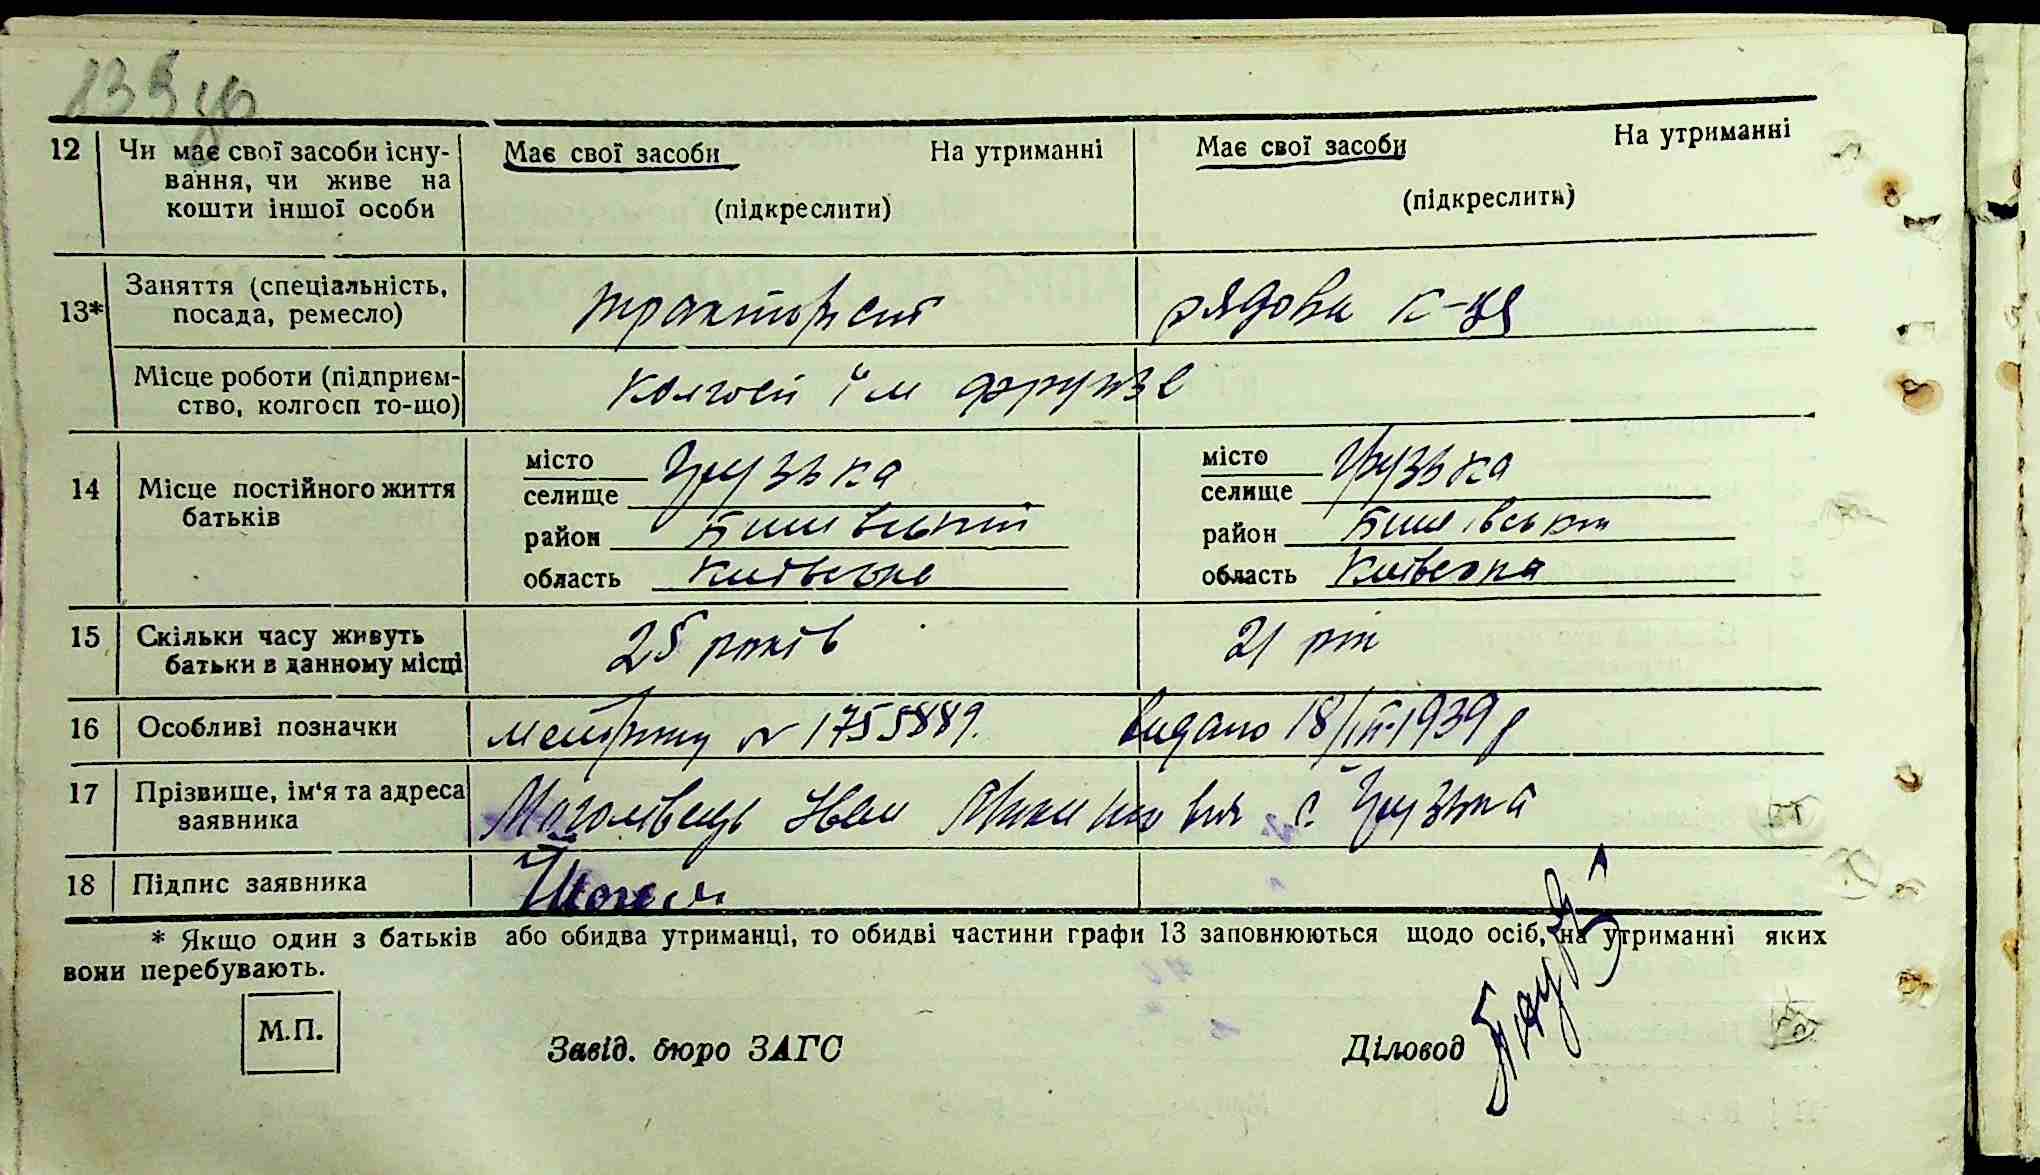 133
12 Чи має свої засоби існу- Має свої засоби На утриманні Має свої засоби На утриманні
вання, чи живе на
кошти іншої особи (підкреслити) (підкреслити)
13* Заняття (спеціальність, тракторист рядова к-ця
посада, ремесло)
Місце роботи (підприєм- Колгосп їм Фрунзе
ство, колгосп то-що)
14 Місце постійного життя місто Грузька місто Грузька
батьків селище селище
район Бишівський район Бишівський
область Київська область Київська
15 Скільки часу живуть 25 років 21 рік
батьки в данному місці
16 Особливі позначки метрику № 1755889. видано 18/III-1939 р
17 Прізвище, ім'я та адреса Іван с. Грузька
заявника
18 Підпис заявника
* Якщо один з батьків або обидва утриманці, то обидві частини графи 13 заповнюються щодо осіб, на утриманні яких
вони перебувають.
М.П.
Завід. бюро ЗАГС Діловод